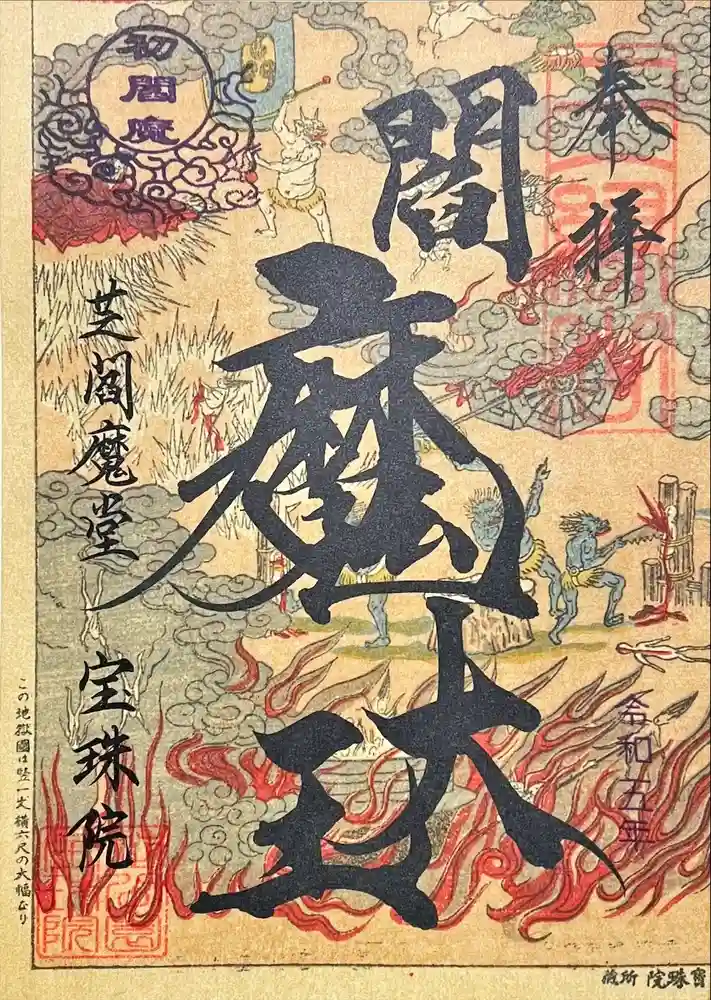 奉拝
閻魔大王
初閻魔
芝閻魔堂
宝珠院
令和五年
この地獄圖は竪一丈横六尺の大幅なり
寳珠院所蔵